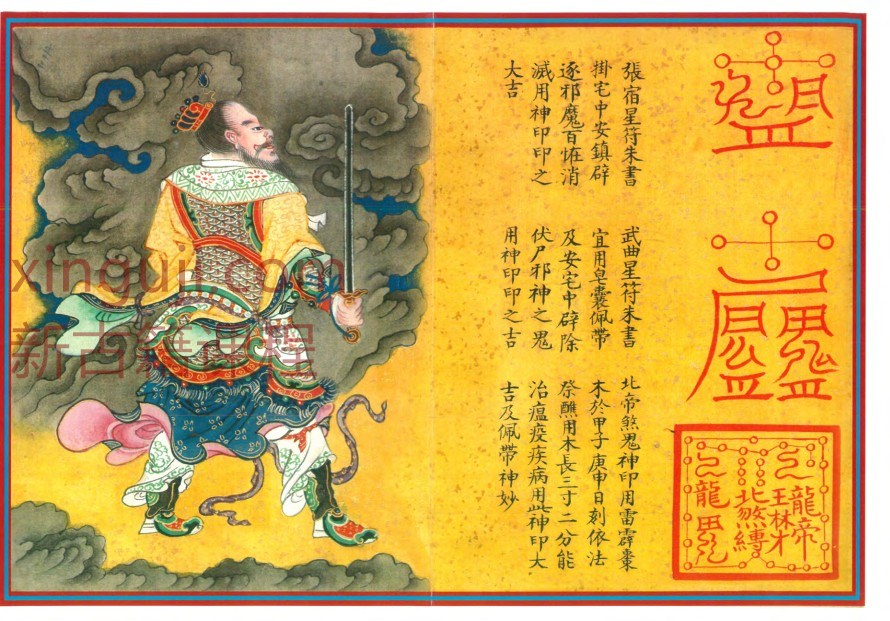 張宿星符朱書
掛宅中安鎮辟
逐邪魔百恠消
滅用神印印之
大吉
武曲星符朱書
宜用皂囊佩帶
及安宅中辟除
伏尸邪神之鬼
用神印印之吉
北帝煞鬼神印用雷霹棗
木於甲子庚申日刻依法
祭醮用木長三寸二分能
治瘟疫疾病用此神印大
吉及佩帶神妙
北煞縛
龍
xinguji.com
新古